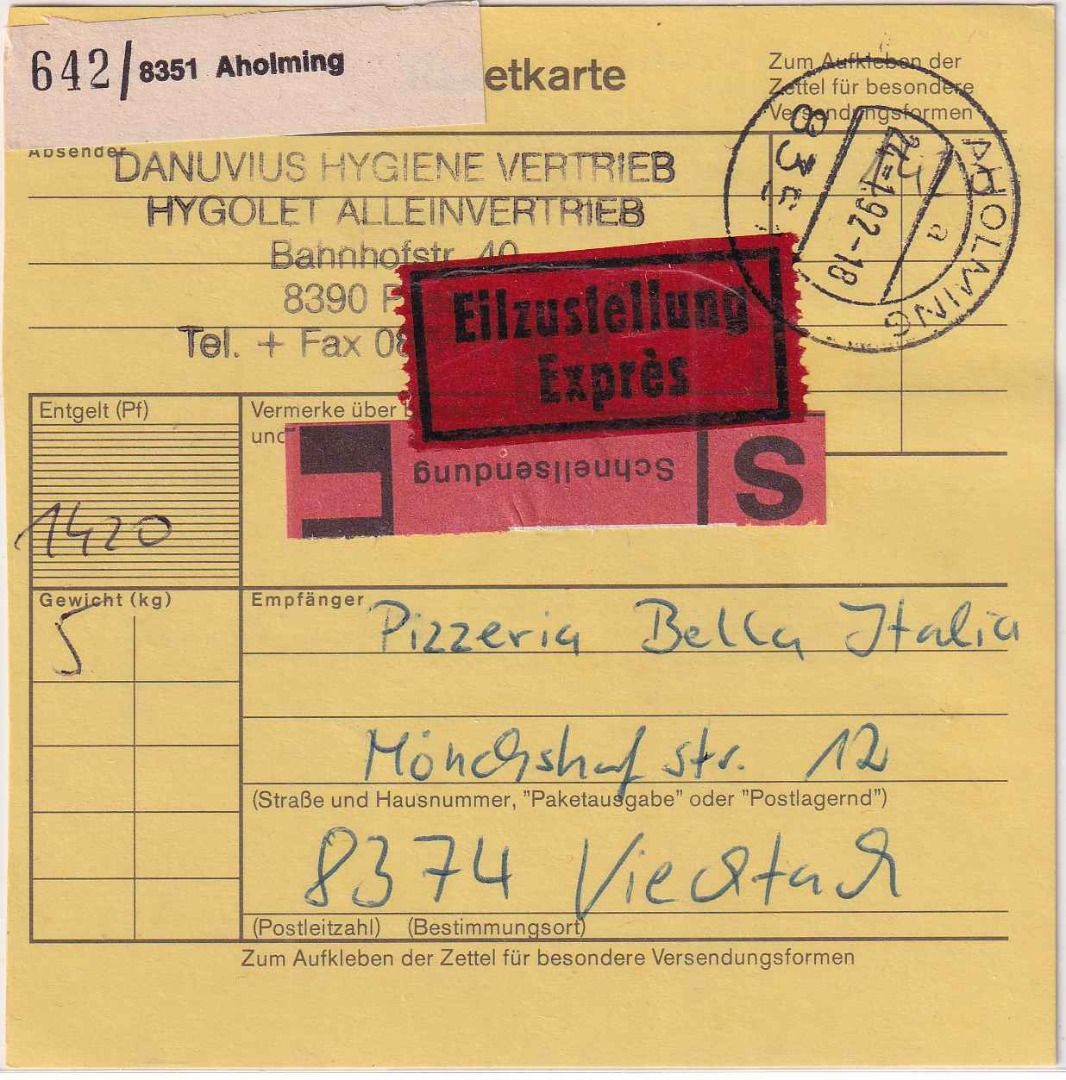 642/8351 Aholming
etkarte
Zum Aufkleben der
Zettel für besondere
Versendungsformen
Absender
DANUVIUS HYGIENE VERTRIEB
HYGOLET ALLEINVERTRIEB
Bahnhofstr. 40
8390 P
Tel. + Fax 08
AHOLMING
a
-1.92-18
Eilzustellung
Exprès
Entgelt (Pf)
1420
Vermerke über
und
Schnellsendung
S
Gewicht (kg)
5
Empfänger
Pizzeria Bella Italia
Mönchshofstr. 12
(Straße und Hausnummer, "Paketausgabe" oder "Postlagernd")
8374 Viechtach
(Postleitzahl) (Bestimmungsort)
Zum Aufkleben der Zettel für besondere Versendungsformen